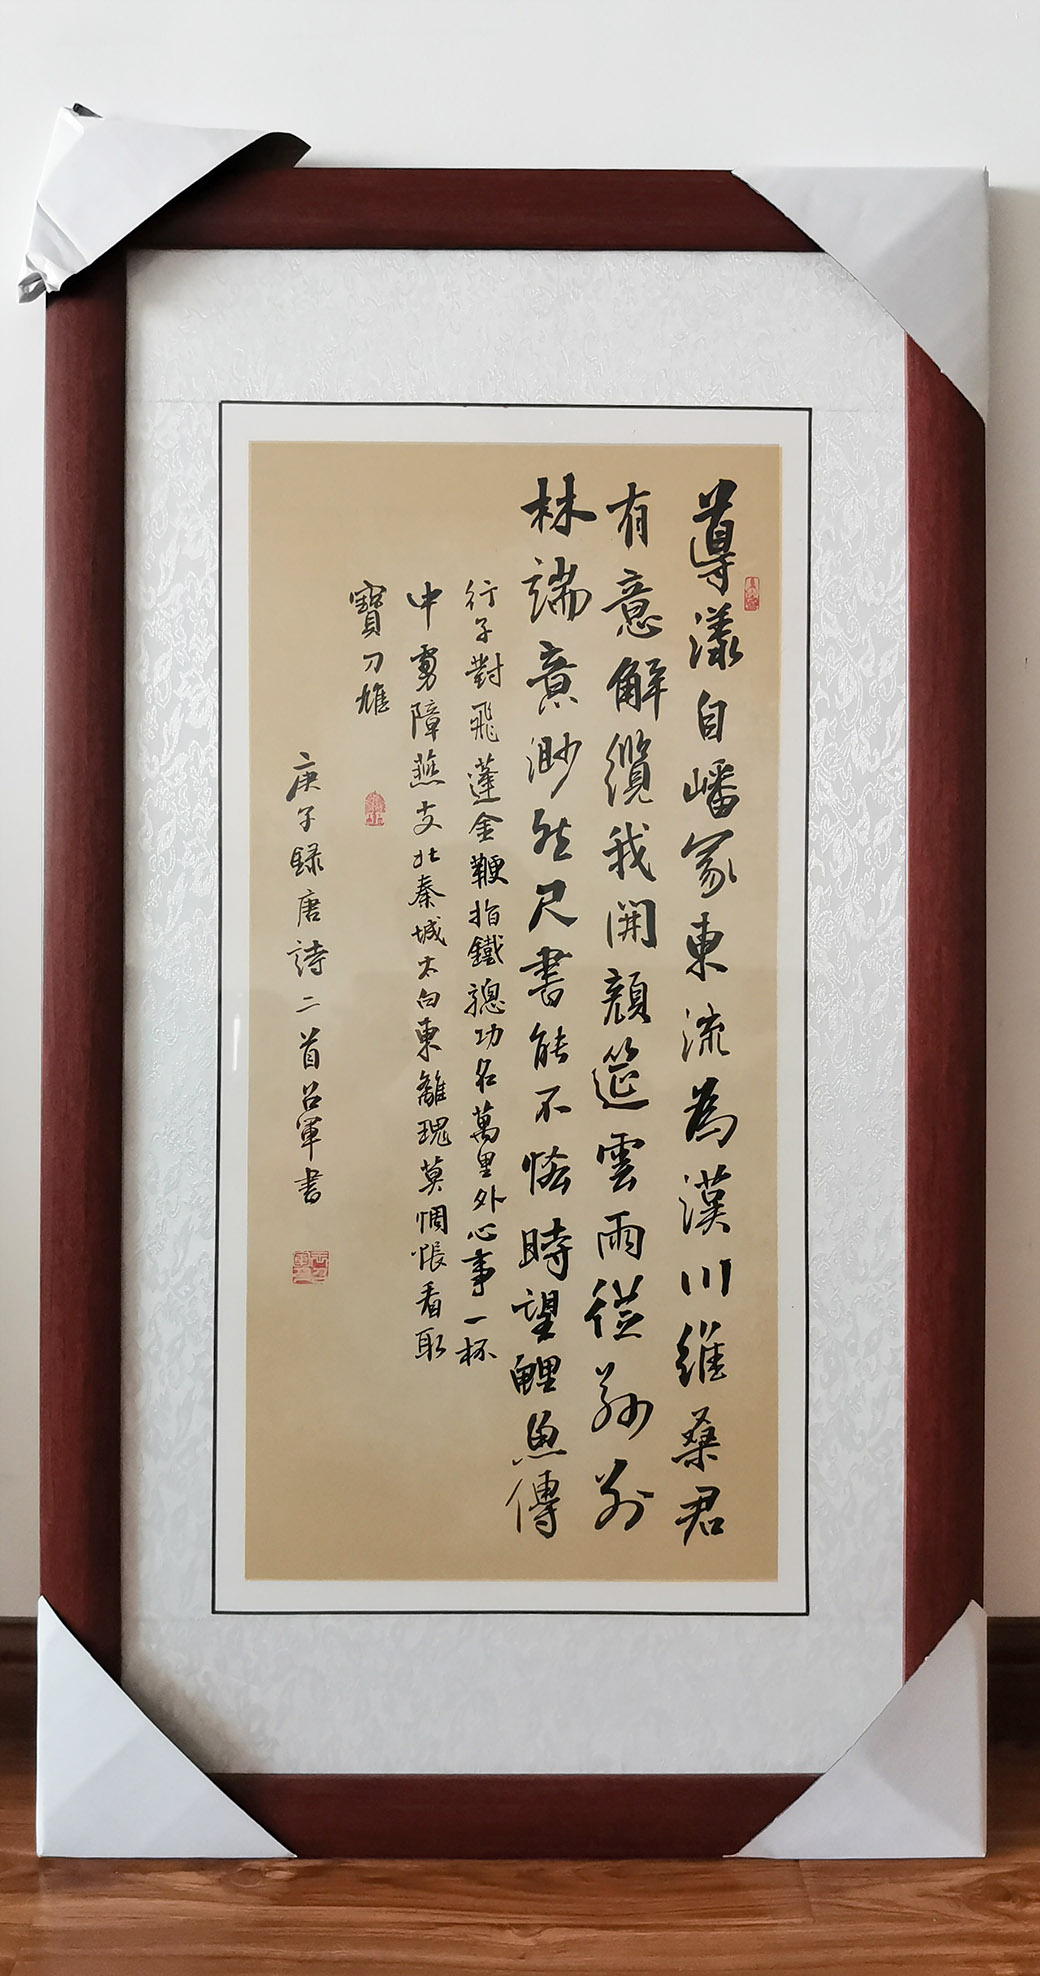 導漾自嶓冢東流為漢川維桑君
有意解纜我開顏筵雲雨從茲別
林端意渺然尺書能不恡時望鯉魚傳
行子對飛蓬金鞭指鐵驄功名萬里外心事一杯
中虜障燕支北秦城太白東離魂莫惆悵看取
寶刀雄
庚子録唐詩二首呂軍書